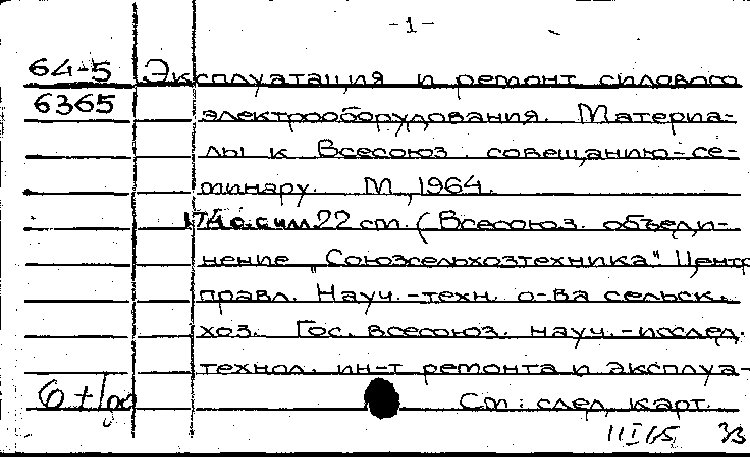 -1-
64-5 Эксплуатация и ремонт силового
6365 электрооборудования. Материа-
лы к Всесоюз. совещанию-се-
минару. М., 1964.
174 с. с илл. 22 см. (Всесоюз. объеди-
нение „Союзсельхозтехника" Центр
правл. Науч.-техн. о-ва сельск.
хоз. Гос. всесоюз. науч.-исслед.
технол. ин-т ремонта и эксплуа-
См: след. карт.